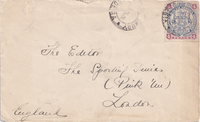 The Editor
The Sporting Times
(Pink 'Un)
London.
England